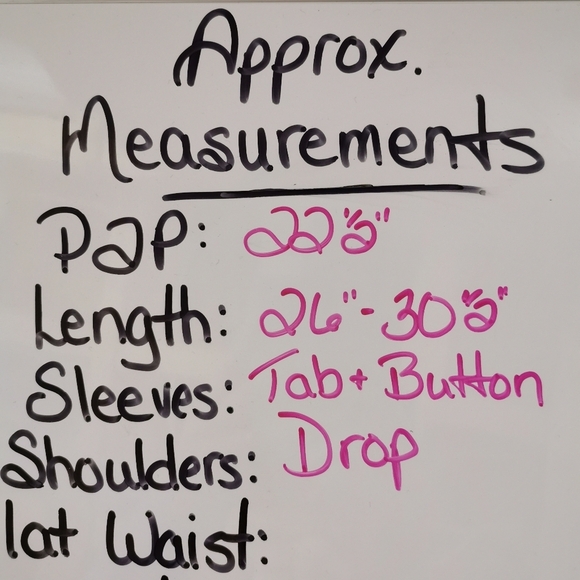 Approx.
Measurements
P2P: 22 1/2"
Length: 26"-30 1/2"
Sleeves: Tab + Button
Shoulders: Drop
lat Waist: